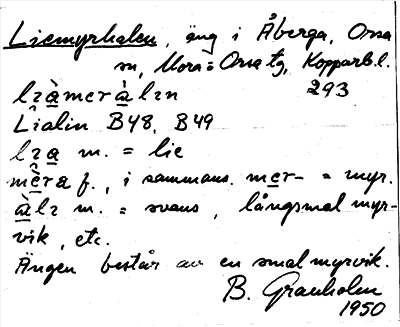 Liemyrhalen, äng i Åberga, Orsa
sn, Mora o Orsa tg, Kopparb.l.
lɪa̲mɛrà̲lɪn 293
Lialin B48, B49
lɪa̲ m. = lie
mɛ̂ra f., i sammans. mɛr- = myr.
à̲lɪ m. = svans, långsmal myr-
vik, etc.
Ängen består av en smal myrvik.
B. Granholm
1950